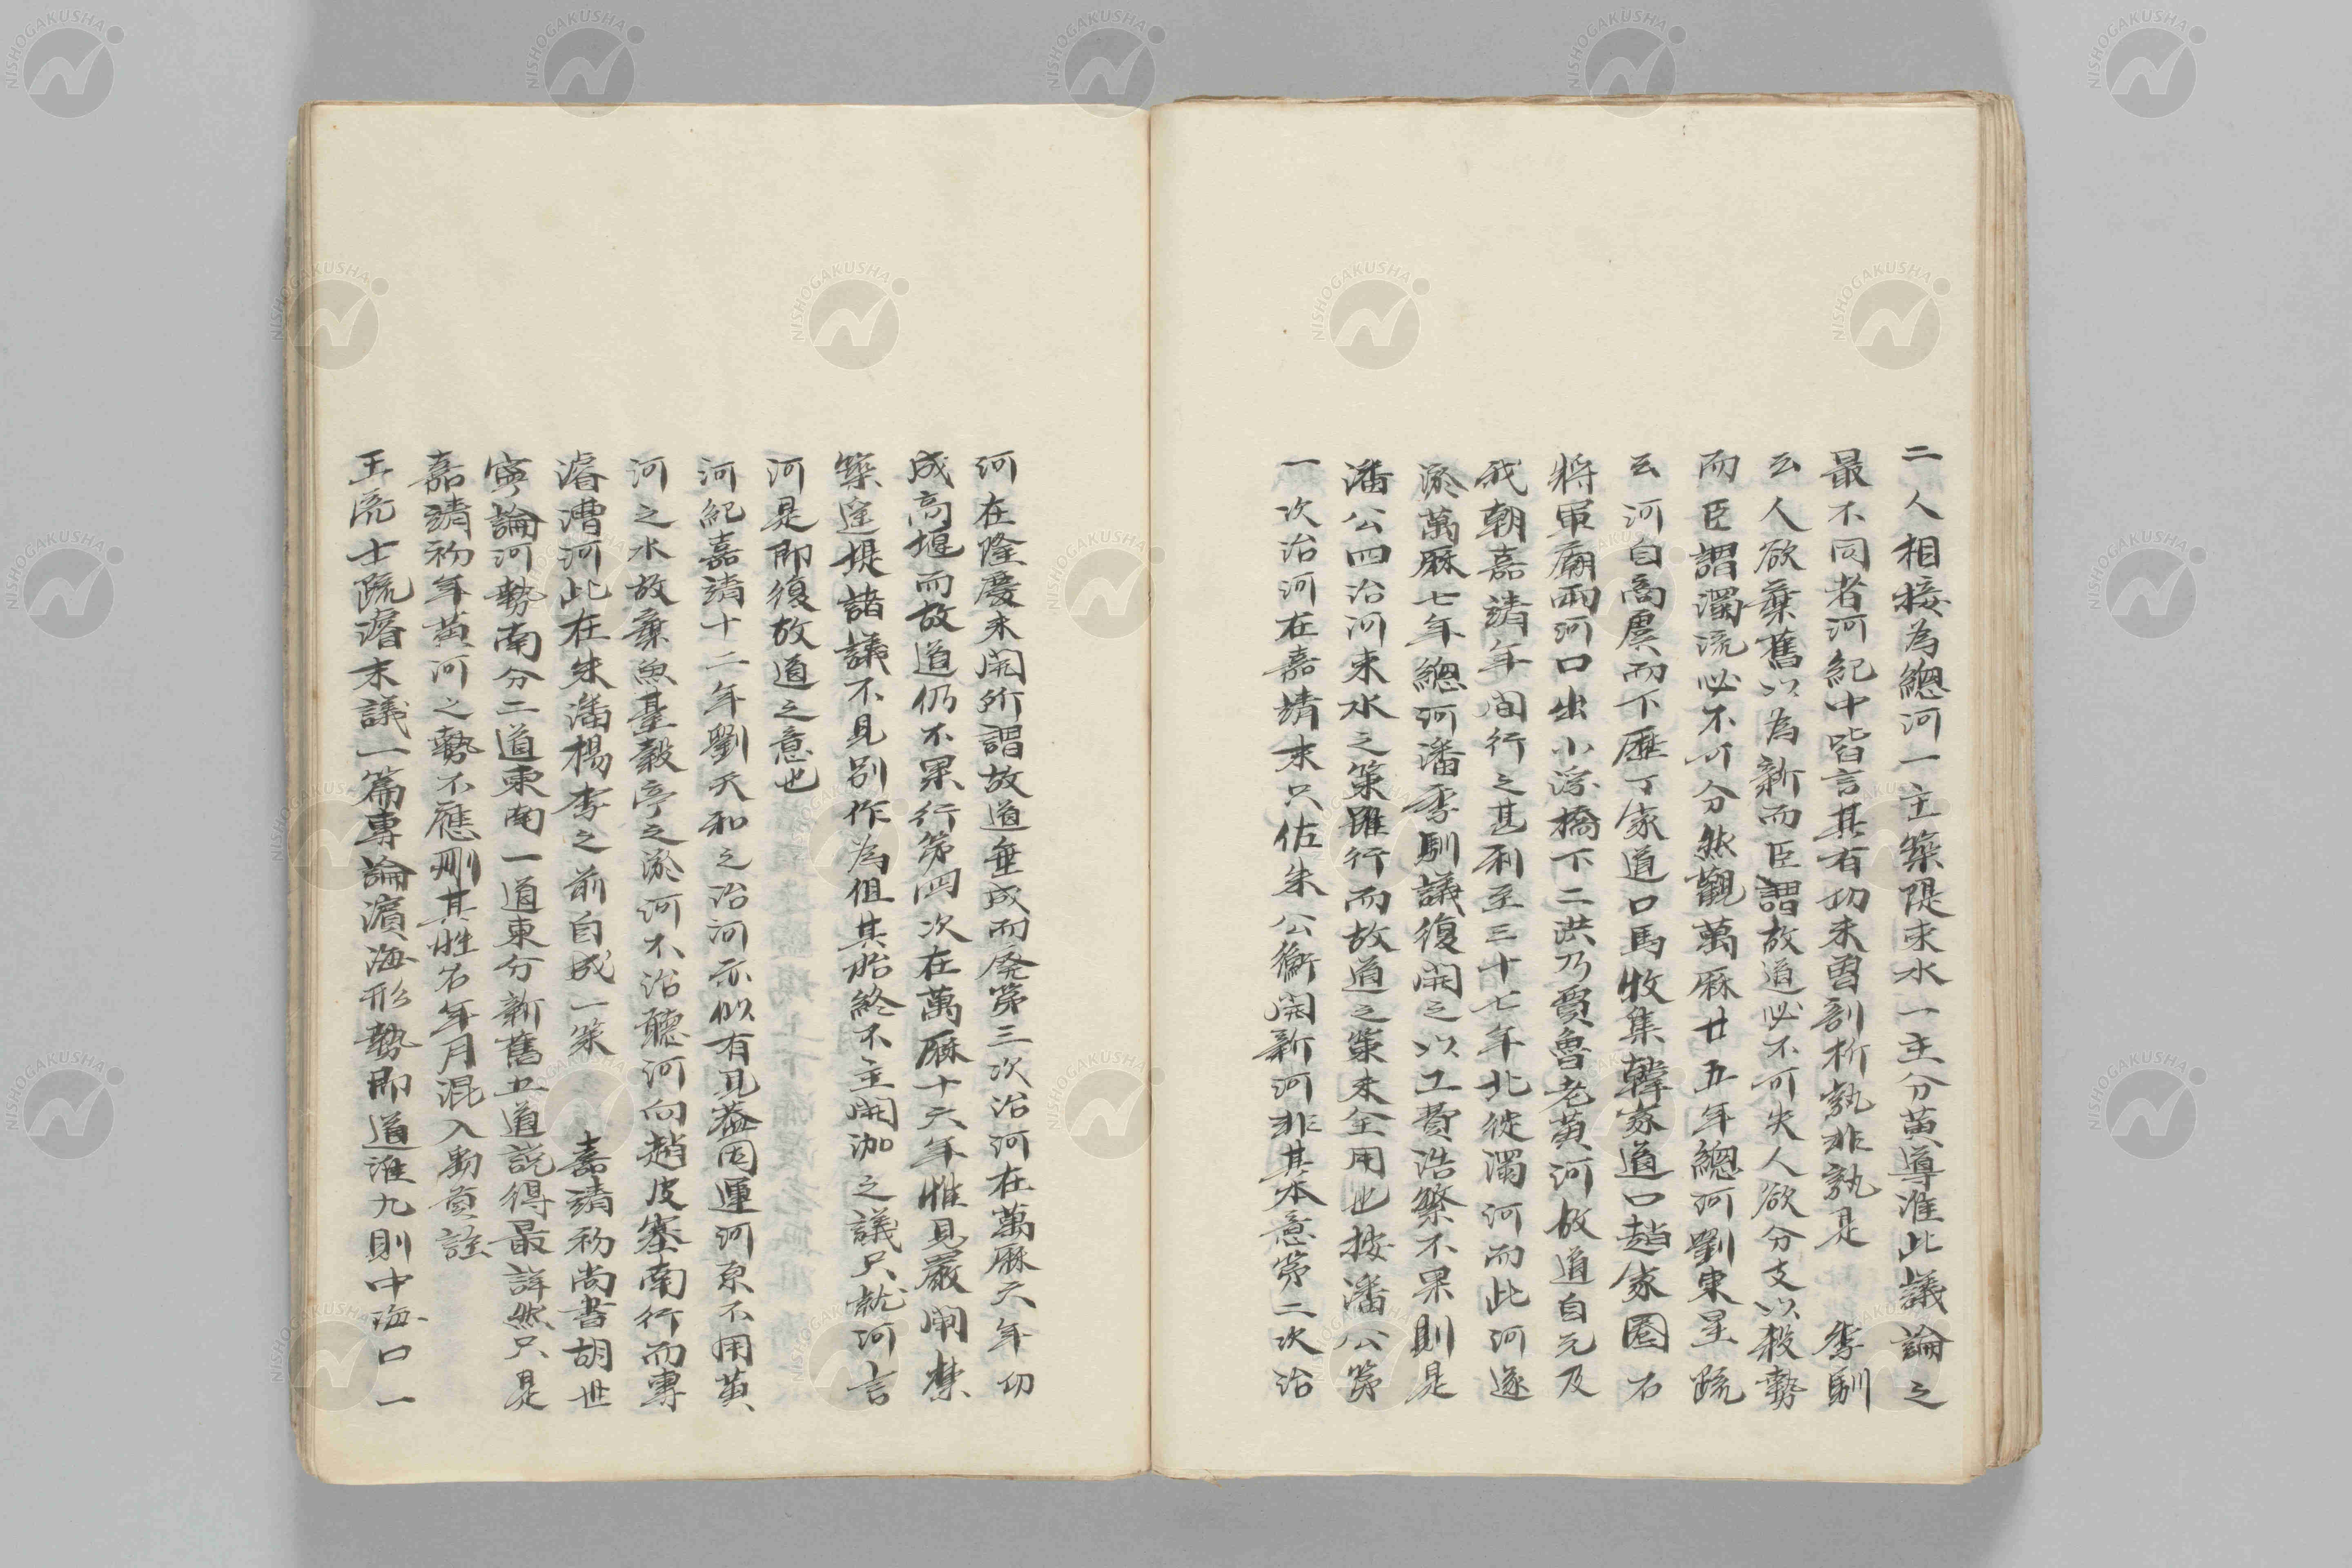 二人相接為總河一主築隄束水一主分黃導淮此議論之
最不同者河紀中皆言其有功未曾剖析孰非孰是 季馴
云人欲棄舊以為新而臣謂故道必不可失人欲分支以殺勢
而臣謂濁流必不可分然觀萬厤廿五年總河劉東星疏
云河自商虞而下歷丁家道口馬牧集韓家道口趙家圈石
將軍廟兩河口出小浮橋下二洪乃賈魯老黃河故道自元及
我朝嘉靖年間行之甚利至三十七年北徙濁河而此河遂
淤萬厤七年總河潘季馴議復開之以工費浩繁不果則是
潘公四治河束水之策雖行而故道之策未全用也按潘公第
一次治河在嘉靖末只佐朱公衡開新河非其本意第二次治
河在隆慶末開所謂故道垂成而廃第三次治河在萬厤六年功
成高堰而故道仍不果行第四次在萬厤十六年惟見嚴閘禁
築遥堤諸議不見別作為但其始終不主開泇之議只就河言
河是即復故道之意也
河紀嘉靖十二年劉天和之治河亦似有見蓋因運河原不用黃
河之水故棄魚臺穀亭之淤河不治聽河向趙皮塞南行而專
濬漕河此在朱潘楊李之前自成一策 嘉靖初尚書胡世
寧論河勢南分二道東南一道東分新舊五道說得最詳然只是
嘉靖初年黃河之勢不應刪其姓名年月混入勦賁註
玉虎士疏濬末議一篇專論濱海形勢即道淮九則中海口一